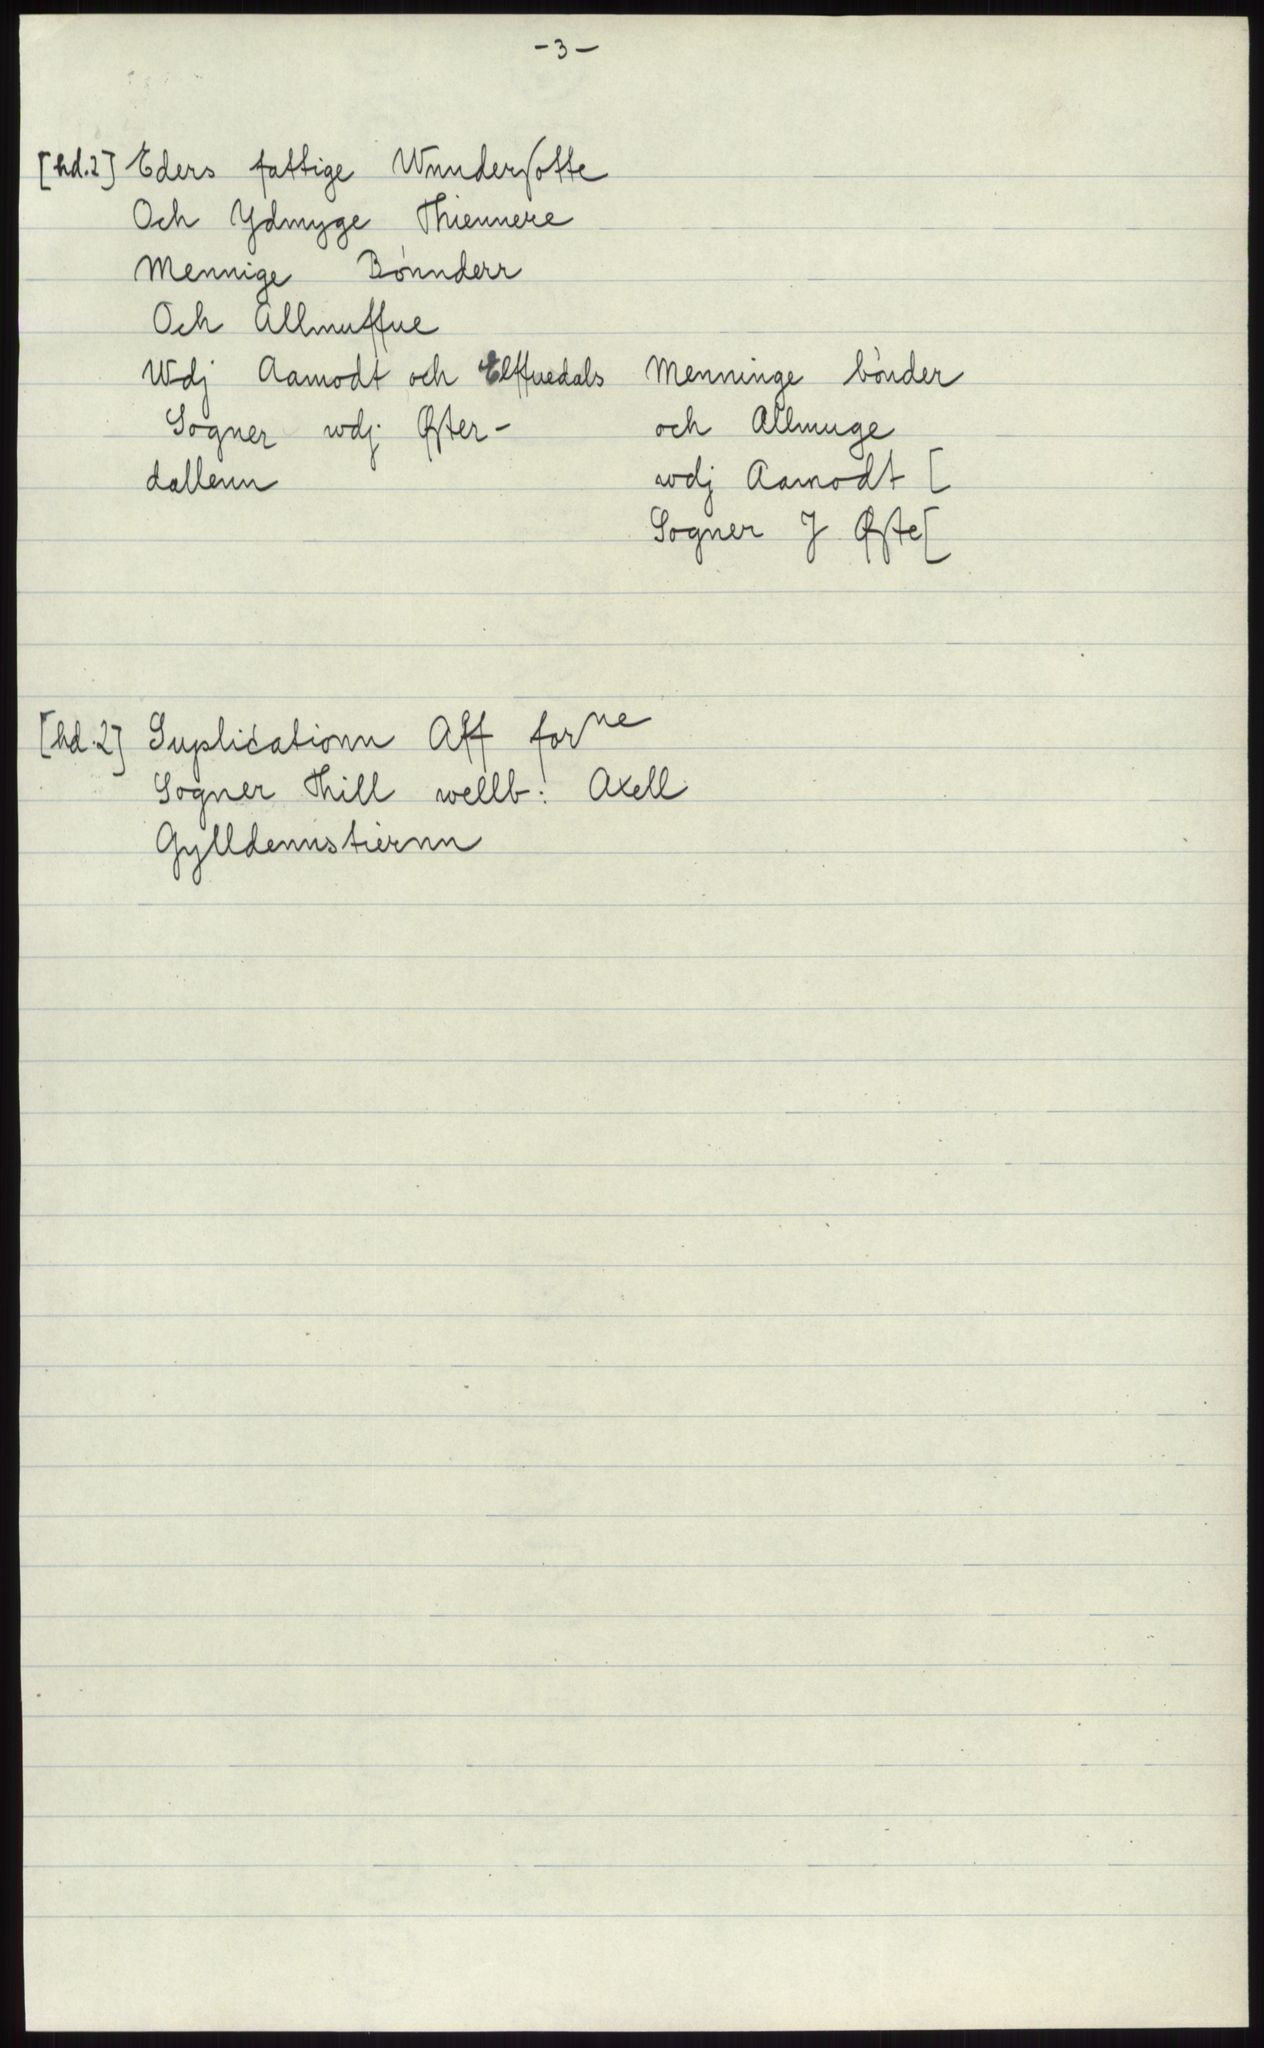 -3-
[hd.2] Eders fattige Wnnderſotte
Och Ydmyge Thiennere
Mennige Bönnderr
Och Allmuffue
Wdj Aamodt och Elffuedals
Sogner wdj Øſter-
dallenn
Menninge bönder
och Allmuge
wdj Aamodt [
Sogner J Øſte[
[hd.2] Suplicationn Aff forne
Sogner Thill wellb: Axell
Gylldennstiernn